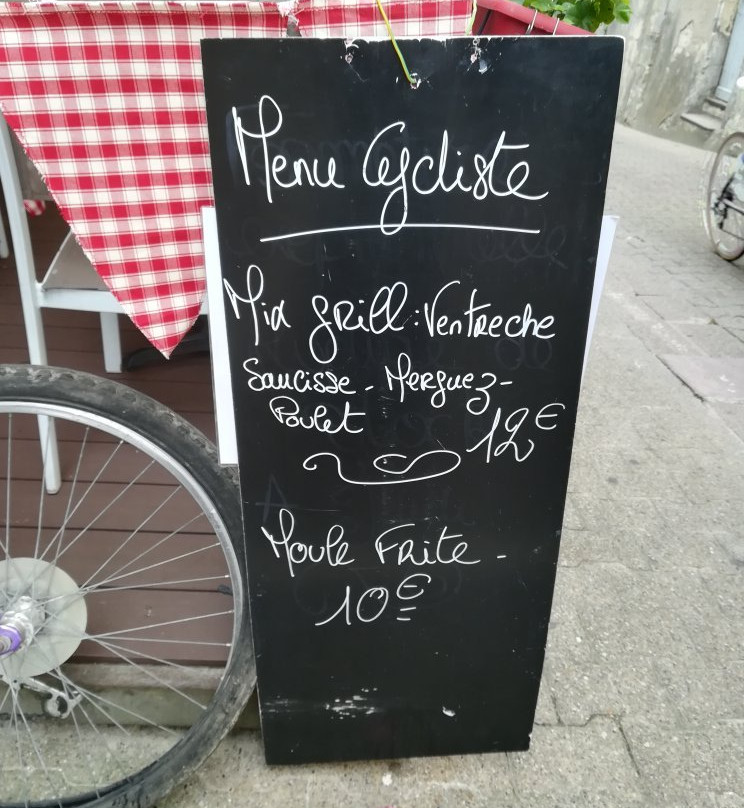 Menu Cycliste
Mix grill : Ventreche
Saucisse - Merguez -
Poulet 12€
Moule Frite -
10€